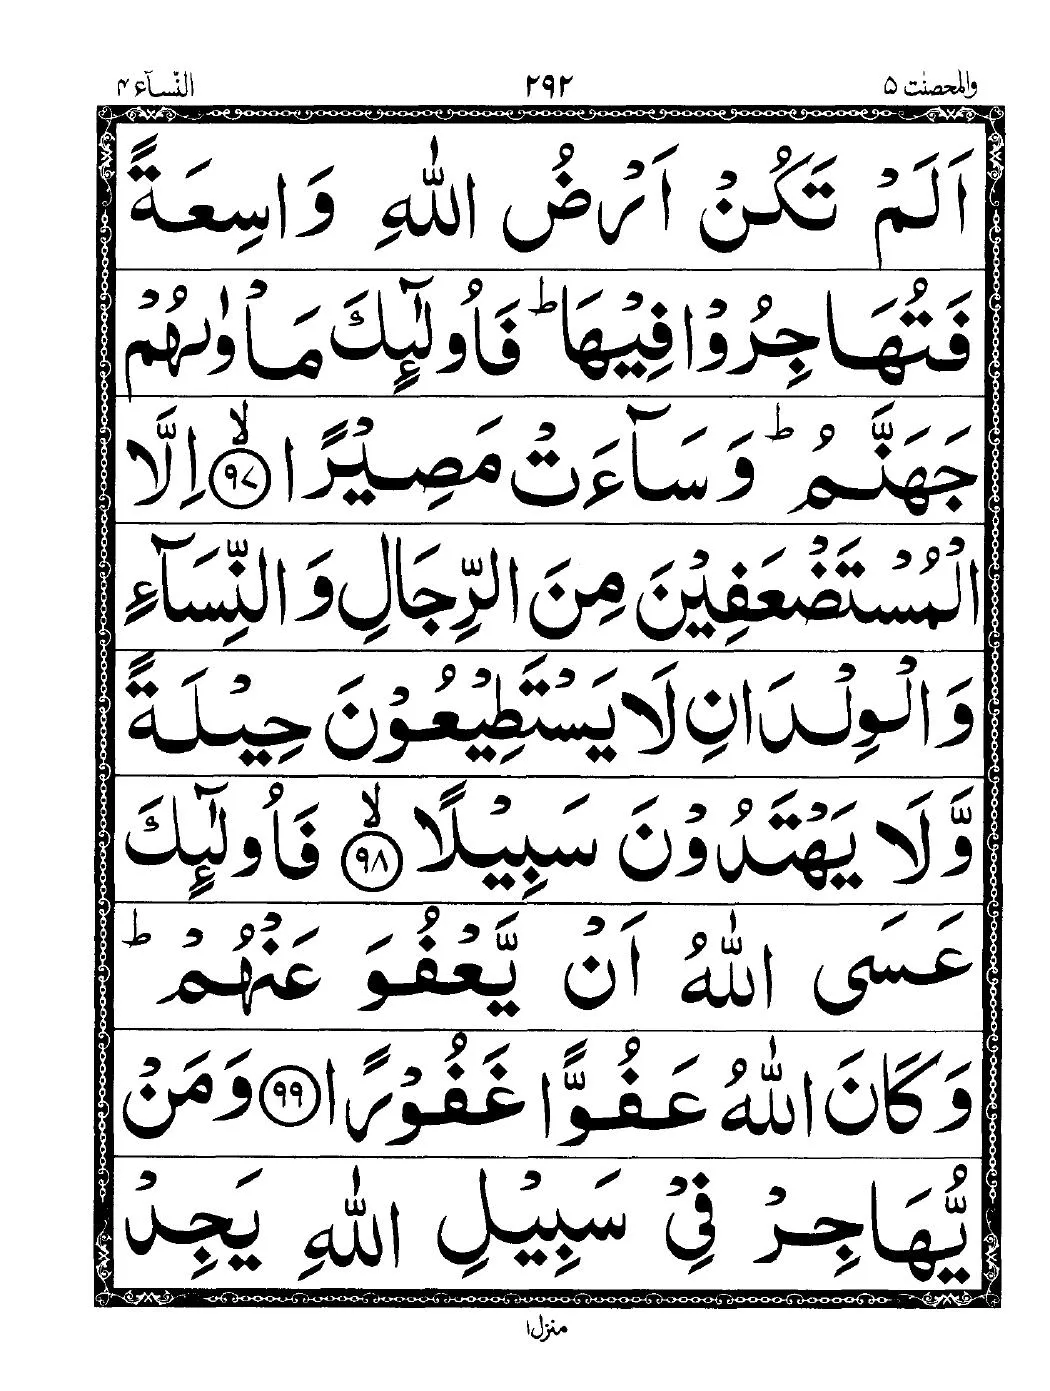 والمحصنت ۵ ۲۹۲ النّسآء ۴
اَلَمْ تَكُنْ اَرْضُ اللّٰهِ وَاسِعَةً
فَتُهَاجِرُوْا فِيْهَا ؕ فَاُولٰٓئِكَ مَاْوٰىهُمْ
جَهَنَّمُ ؕ وَسَآءَتْ مَصِيْرًا ۙ﴿۹۷﴾ اِلَّا
الْمُسْتَضْعَفِيْنَ مِنَ الرِّجَالِ وَالنِّسَآءِ
وَالْوِلْدَانِ لَا يَسْتَطِيْعُوْنَ حِيْلَةً
وَّلَا يَهْتَدُوْنَ سَبِيْلًا ۙ﴿۹۸﴾ فَاُولٰٓئِكَ
عَسَى اللّٰهُ اَنْ يَّعْفُوَ عَنْهُمْ ؕ
وَكَانَ اللّٰهُ عَفُوًّا غَفُوْرًا ﴿۹۹﴾ وَمَنْ
يُّهَاجِرْ فِيْ سَبِيْلِ اللّٰهِ يَجِدْ
منزل ۱